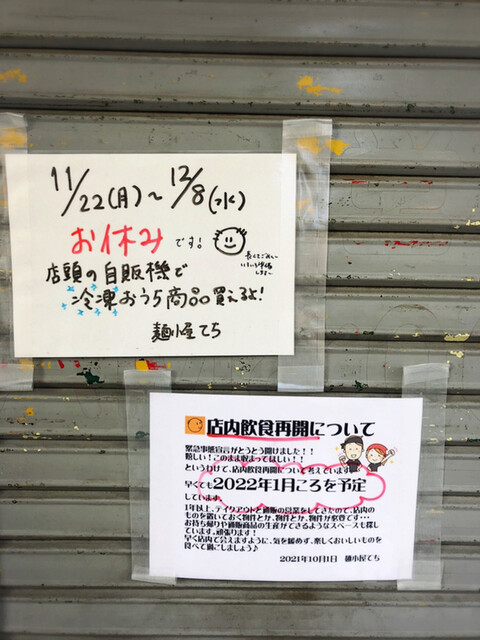 11/22(月)～12/8(水)
お休みです!
店頭の自販機で
冷凍おうち商品買えるよ!
麺小屋てち
店内飲食再開について
緊急事態宣言がとうとう開けました!!
嬉しい!このまま収まってほしい!!
というわけで、店内飲食再開について考えています
早くても2022年1月ころを予定
しています。
1年以上、テイクアウトと通販の営業をしてきたので、店内の
ものを置いておく物件とか、物件とか、物件が必要です・・・
お持ち帰りや通販商品の生産ができるようなスペースも探し
ています。頑張ります!
早く店内で会えますように、気を緩めず、楽しくおいしいものを
食べて過ごしましょう♪
2021年10月1日 麺小屋てち